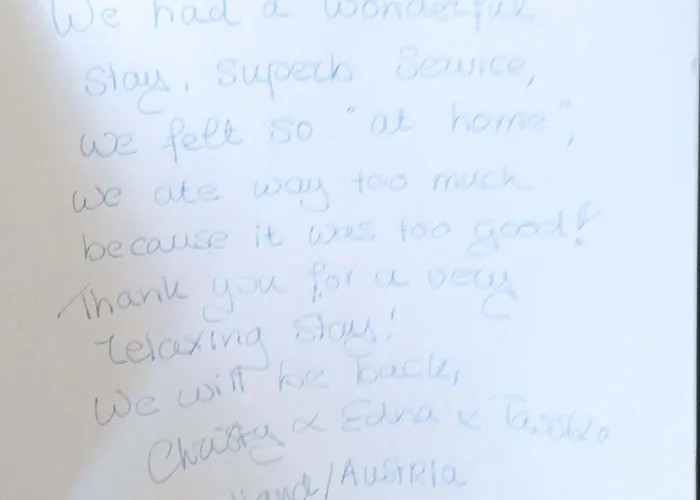 We had a wonderful
stay. Superb Service,
We felt so "at home",
we ate way too much
because it was too good!
Thank you for a very
relaxing stay!
We will be back,
Christy & Edna &
/Austria